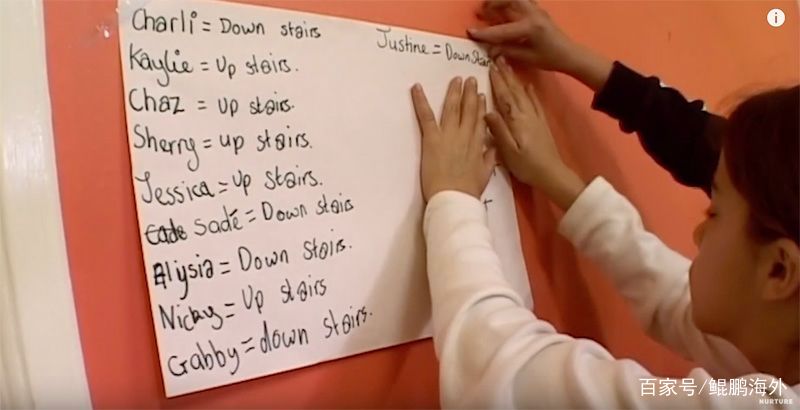 Charli = Down stairs
Justine = Down Stair
Kaylie = Up stairs.
Chaz = Up stairs.
Sherry = up stairs.
Jessica = Up stairs.
Cade sadé = Down stairs
Alysia = Down stairs.
Nicky = Up stairs
Gabby = down stairs.
百家号/鲲鹏海外
NURTURE